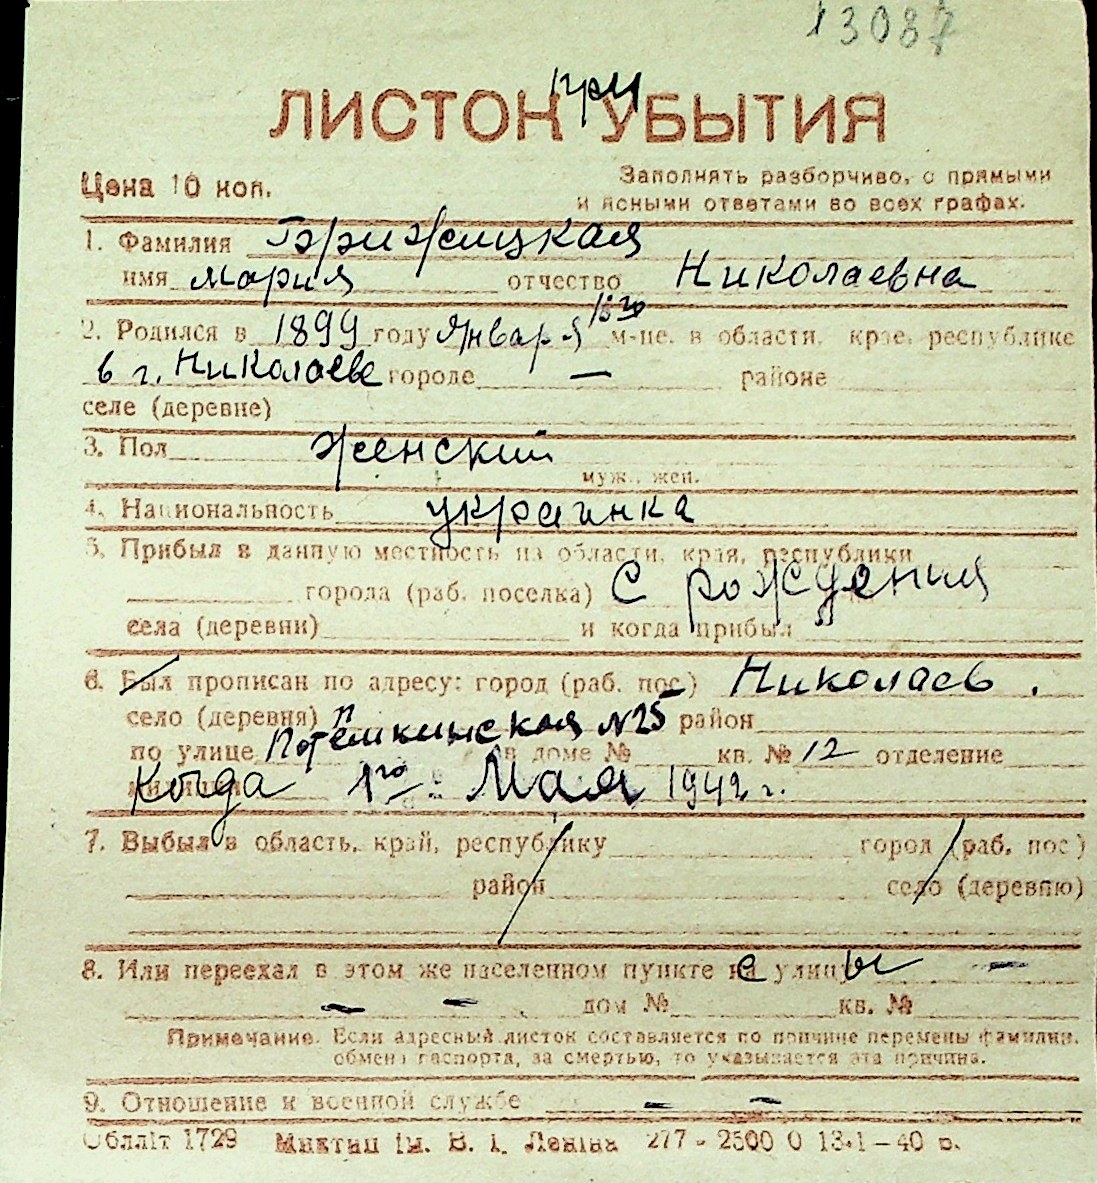 13087
при
ЛИСТОК УБЫТИЯ
Цена 10 коп.
Заполнять разборчиво, с прямыми
и ясными ответами во всех графах.
1. Фамилия Брижицкая
имя Мария отчество Николаевна
2. Родился в 1899 году Января 18го м-це, в области, крае, республике
в г. Николаеве городе — районе
селе (деревне)
3. Пол женский
муж., жен.
4. Национальность украинка
5. Прибыл в данную местность из области, края, республики
города (раб. поселка) С рождения
села (деревни) и когда прибыл "
6. Был прописан по адресу: город (раб. пос) Николаев.
село (деревня) район
по улице Потемкинская №25 в доме № кв. № 12 отделение
милиции Когда 1го Мая 1942 г.
7. Выбыл в область, край, республику город (раб. пос)
район село (деревню)
8. Или переехал в этом же населенном пункте на с улицы —
— — дом № кв. №
Примечание. Если адресный листок составляется по причине перемены фамилии,
обмена паспорта, за смертью, то указывается эта причина.
9. Отношение к военной службе — —
Обліт 1729 ім. В. І. Леніна 277 - 2500 0 13.1—40 р.